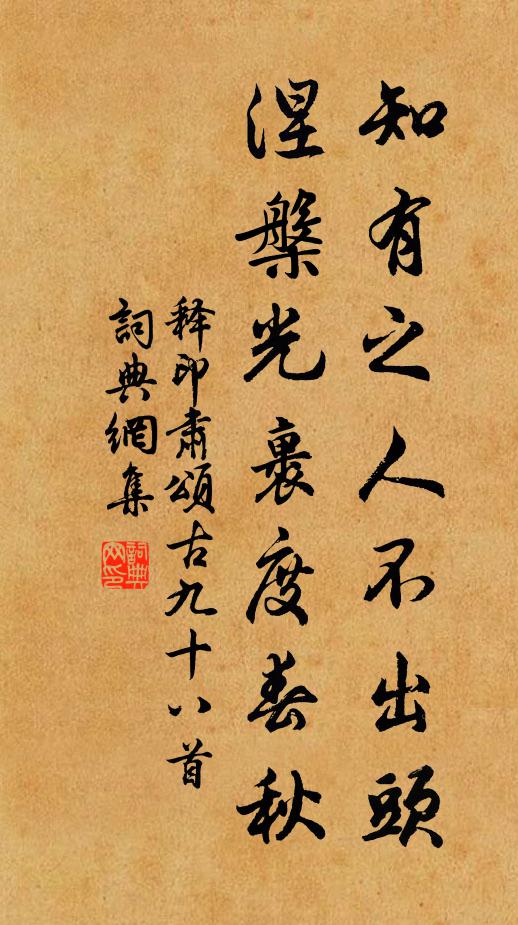 知有之人不出頭
涅槃光裹度春秋
释印肅頌古九十八首
詞典網集
詞典網印